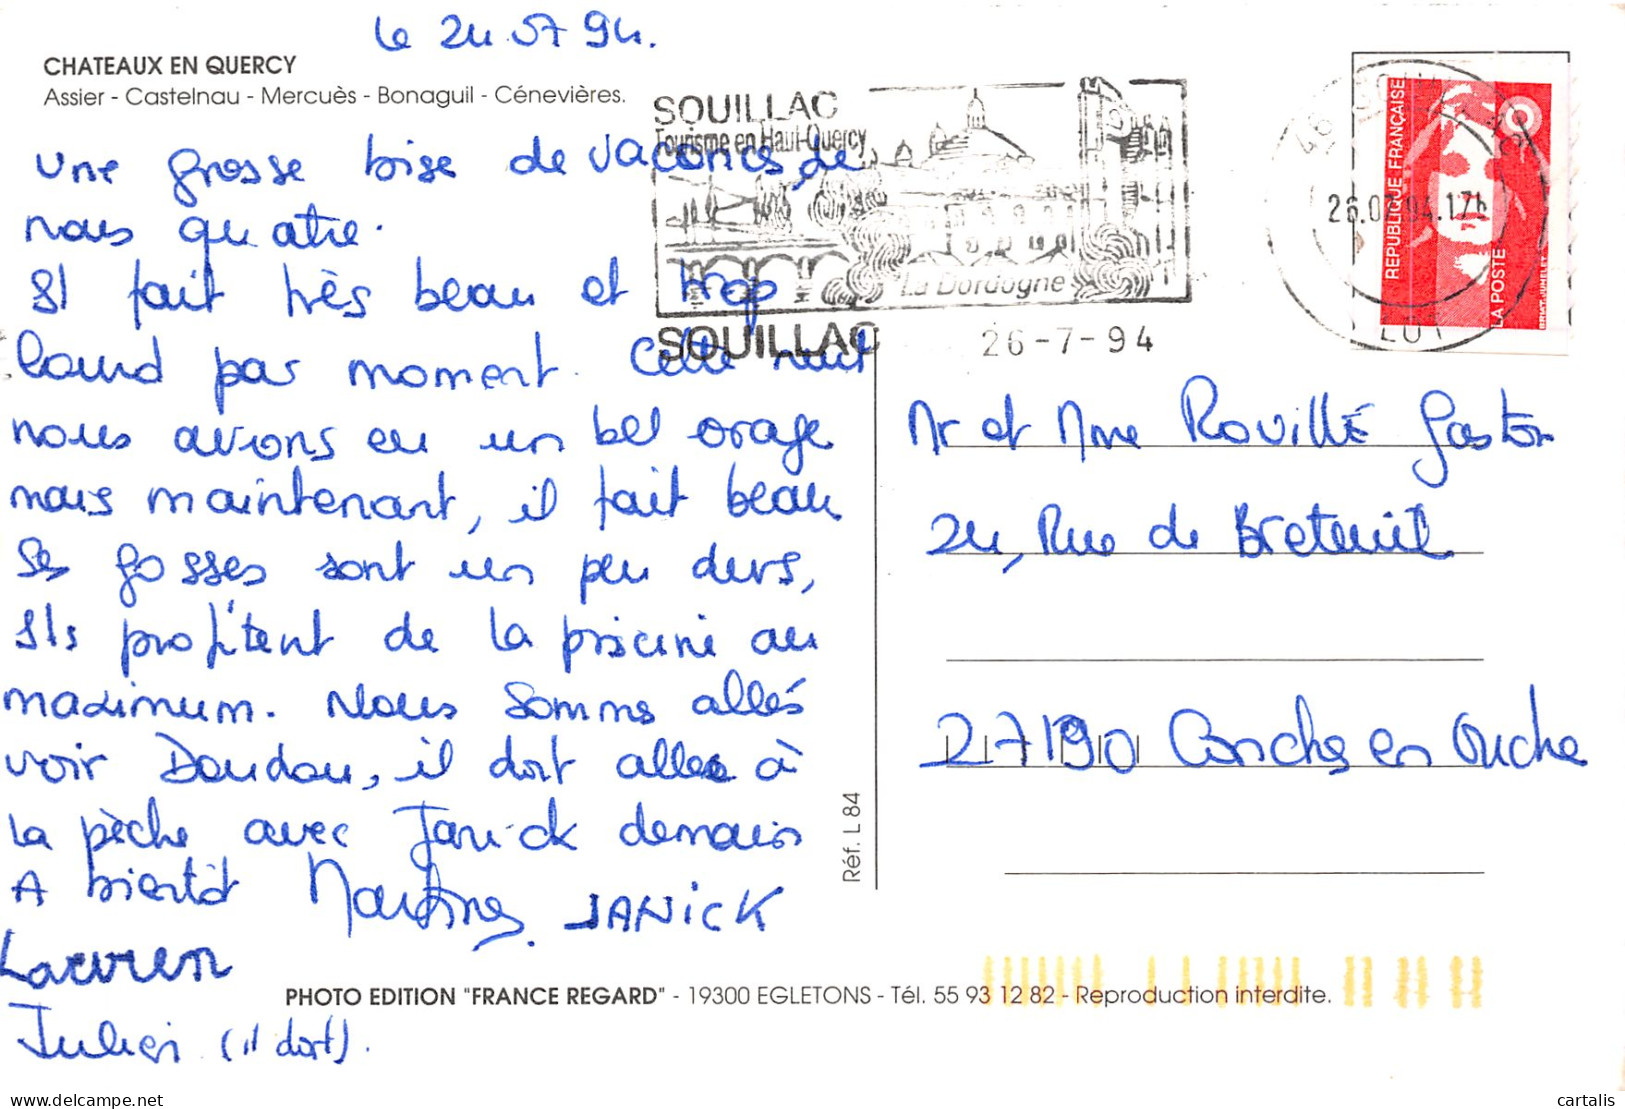 le 24.07.94.
CHATEAUX EN QUERCY
Assier - Castelnau - Mercuès - Bonaguil - Cénevières.
Une grosse bise de vacances de
nous quatre.
Il fait très beau et trop
lourd par moment. Cette nuit
nous avions eu un bel orage
mais maintenant, il fait beau
Les gosses sont un peu durs,
Ils profitent de la piscine au
maximum. Nous sommes allés
voir Doudou, il doit aller à
la pèche avec Janick demain
A bientôt Martine, JANICK
Laurren
Julien (il dort).
SOUILLAC
Tourisme en Haut-Quercy
La Dordogne
SOUILLAC
26-7-94
46 SOUILLAC
26.07.94.17h
LOT
REPUBLIQUE FRANÇAISE
LA POSTE
BRIAT-JUMELET
Mr et Mme ROUILLÉ Gaston
24, Rue de Breteuil
27190 Conches en Ouche
Réf. L 84
PHOTO EDITION "FRANCE REGARD" - 19300 EGLETONS - Tél. 55 93 12 82 - Reproduction interdite.
cartalis